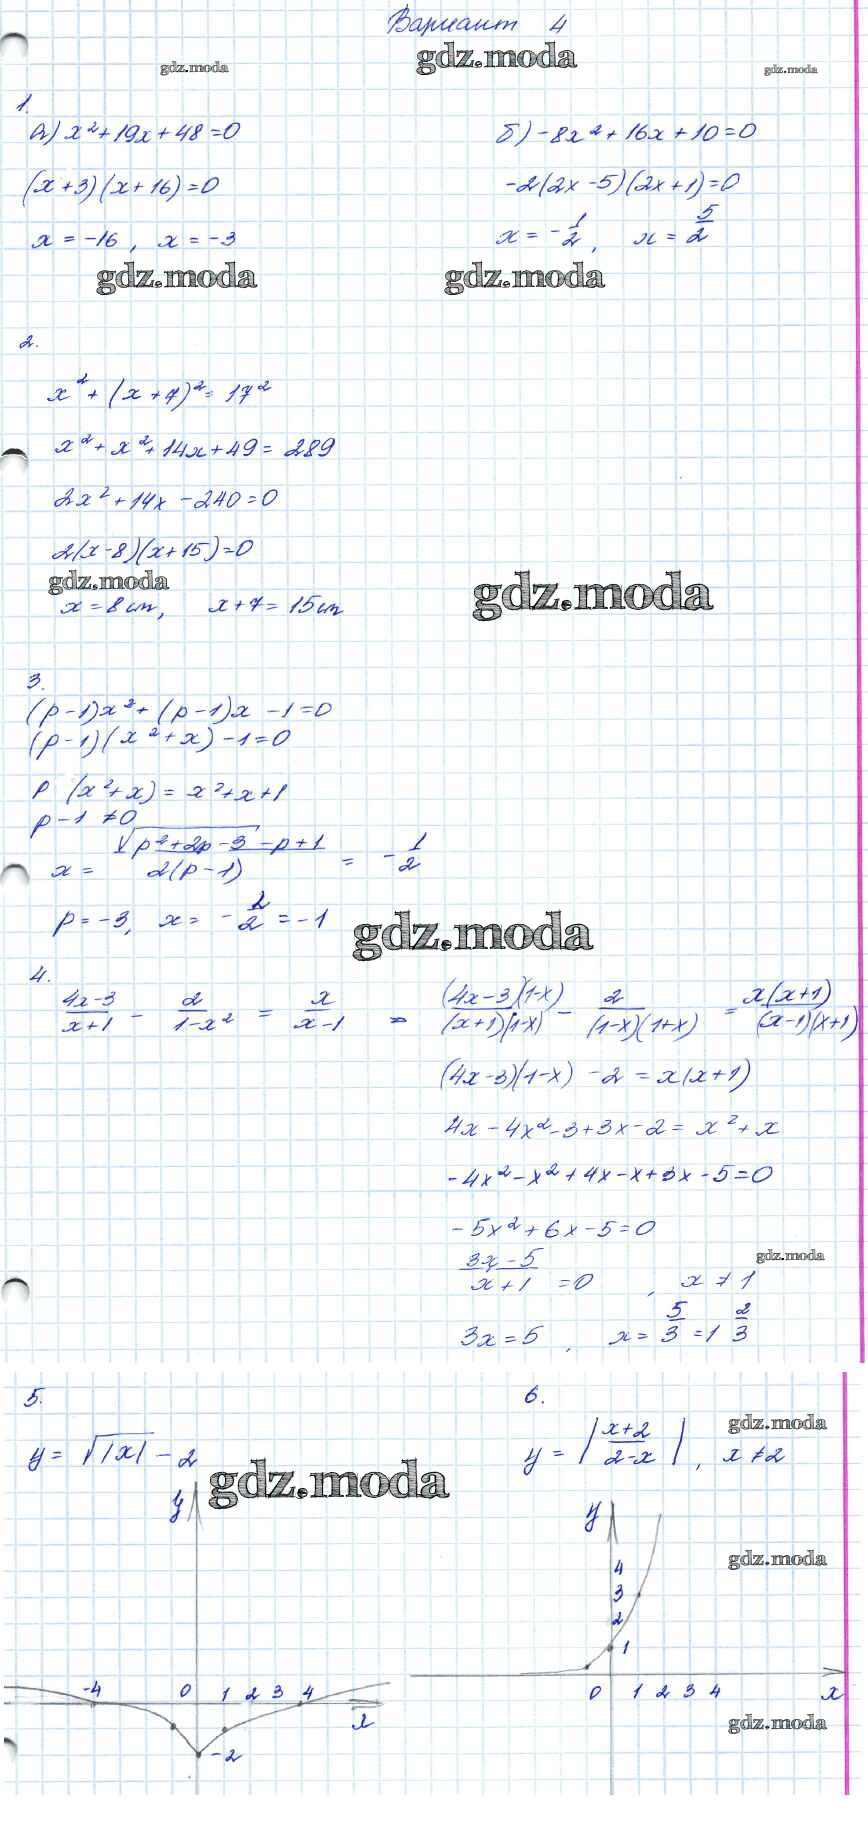 Вариант 4
gdz.moda gdz.moda gdz.moda
1.
а) x² + 19x + 48 = 0
(x + 3)(x + 16) = 0
x = -16, x = -3
gdz.moda
б) -8x² + 16x + 10 = 0
-2(2x - 5)(2x + 1) = 0
x = -1/2, x = 5/2
gdz.moda
2.
x² + (x + 7)² = 17²
x² + x² + 14x + 49 = 289
2x² + 14x - 240 = 0
2(x - 8)(x + 15) = 0
gdz.moda gdz.moda
x = 8 см, x + 7 = 15 см
3.
(p - 1)x² + (p - 1)x - 1 = 0
(p - 1)(x² + x) - 1 = 0
p (x² + x) = x² + x + 1
p - 1 ≠ 0
x = (√(p² + 2p - 3) - p + 1)/(2(p - 1)) = -1/2
p = -3, x = -2/2 = -1
gdz.moda
4.
(4x - 3)/(x + 1) - 2/(1 - x²) = x/(x - 1) = ((4x - 3)(1 - x))/((x + 1)(1 - x)) - 2/((1 - x)(1 + x)) = (x(x + 1))/((x - 1)(x + 1))
(4x - 3)(1 - x) - 2 = x(x + 1)
4x - 4x² - 3 + 3x - 2 = x² + x
-4x² - x² + 4x - x + 3x - 5 = 0
-5x² + 6x - 5 = 0
gdz.moda
(3x - 5)/(x + 1) = 0, x ≠ 1
3x = 5, x = 5/3 = 1 2/3
5.
y = √|x| - 2
gdz.moda
y
-4 0 1 2 3 4
x
-2
6.
gdz.moda
y = |(x + 2)/(2 - x)|, x ≠ 2
y
gdz.moda
4
3
2
1
0 1 2 3 4 x
gdz.moda